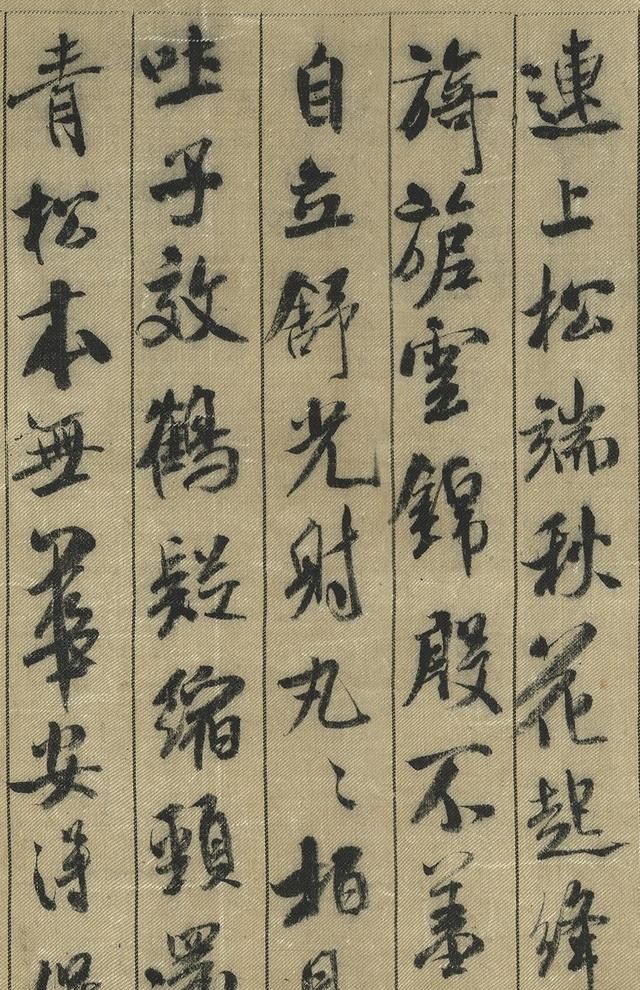 連上松端秋花起絳
旖旎雲錦殷不羞
自立舒光射丸〻柏見
吐子效鶴疑縮頸還
青松本無華安得保